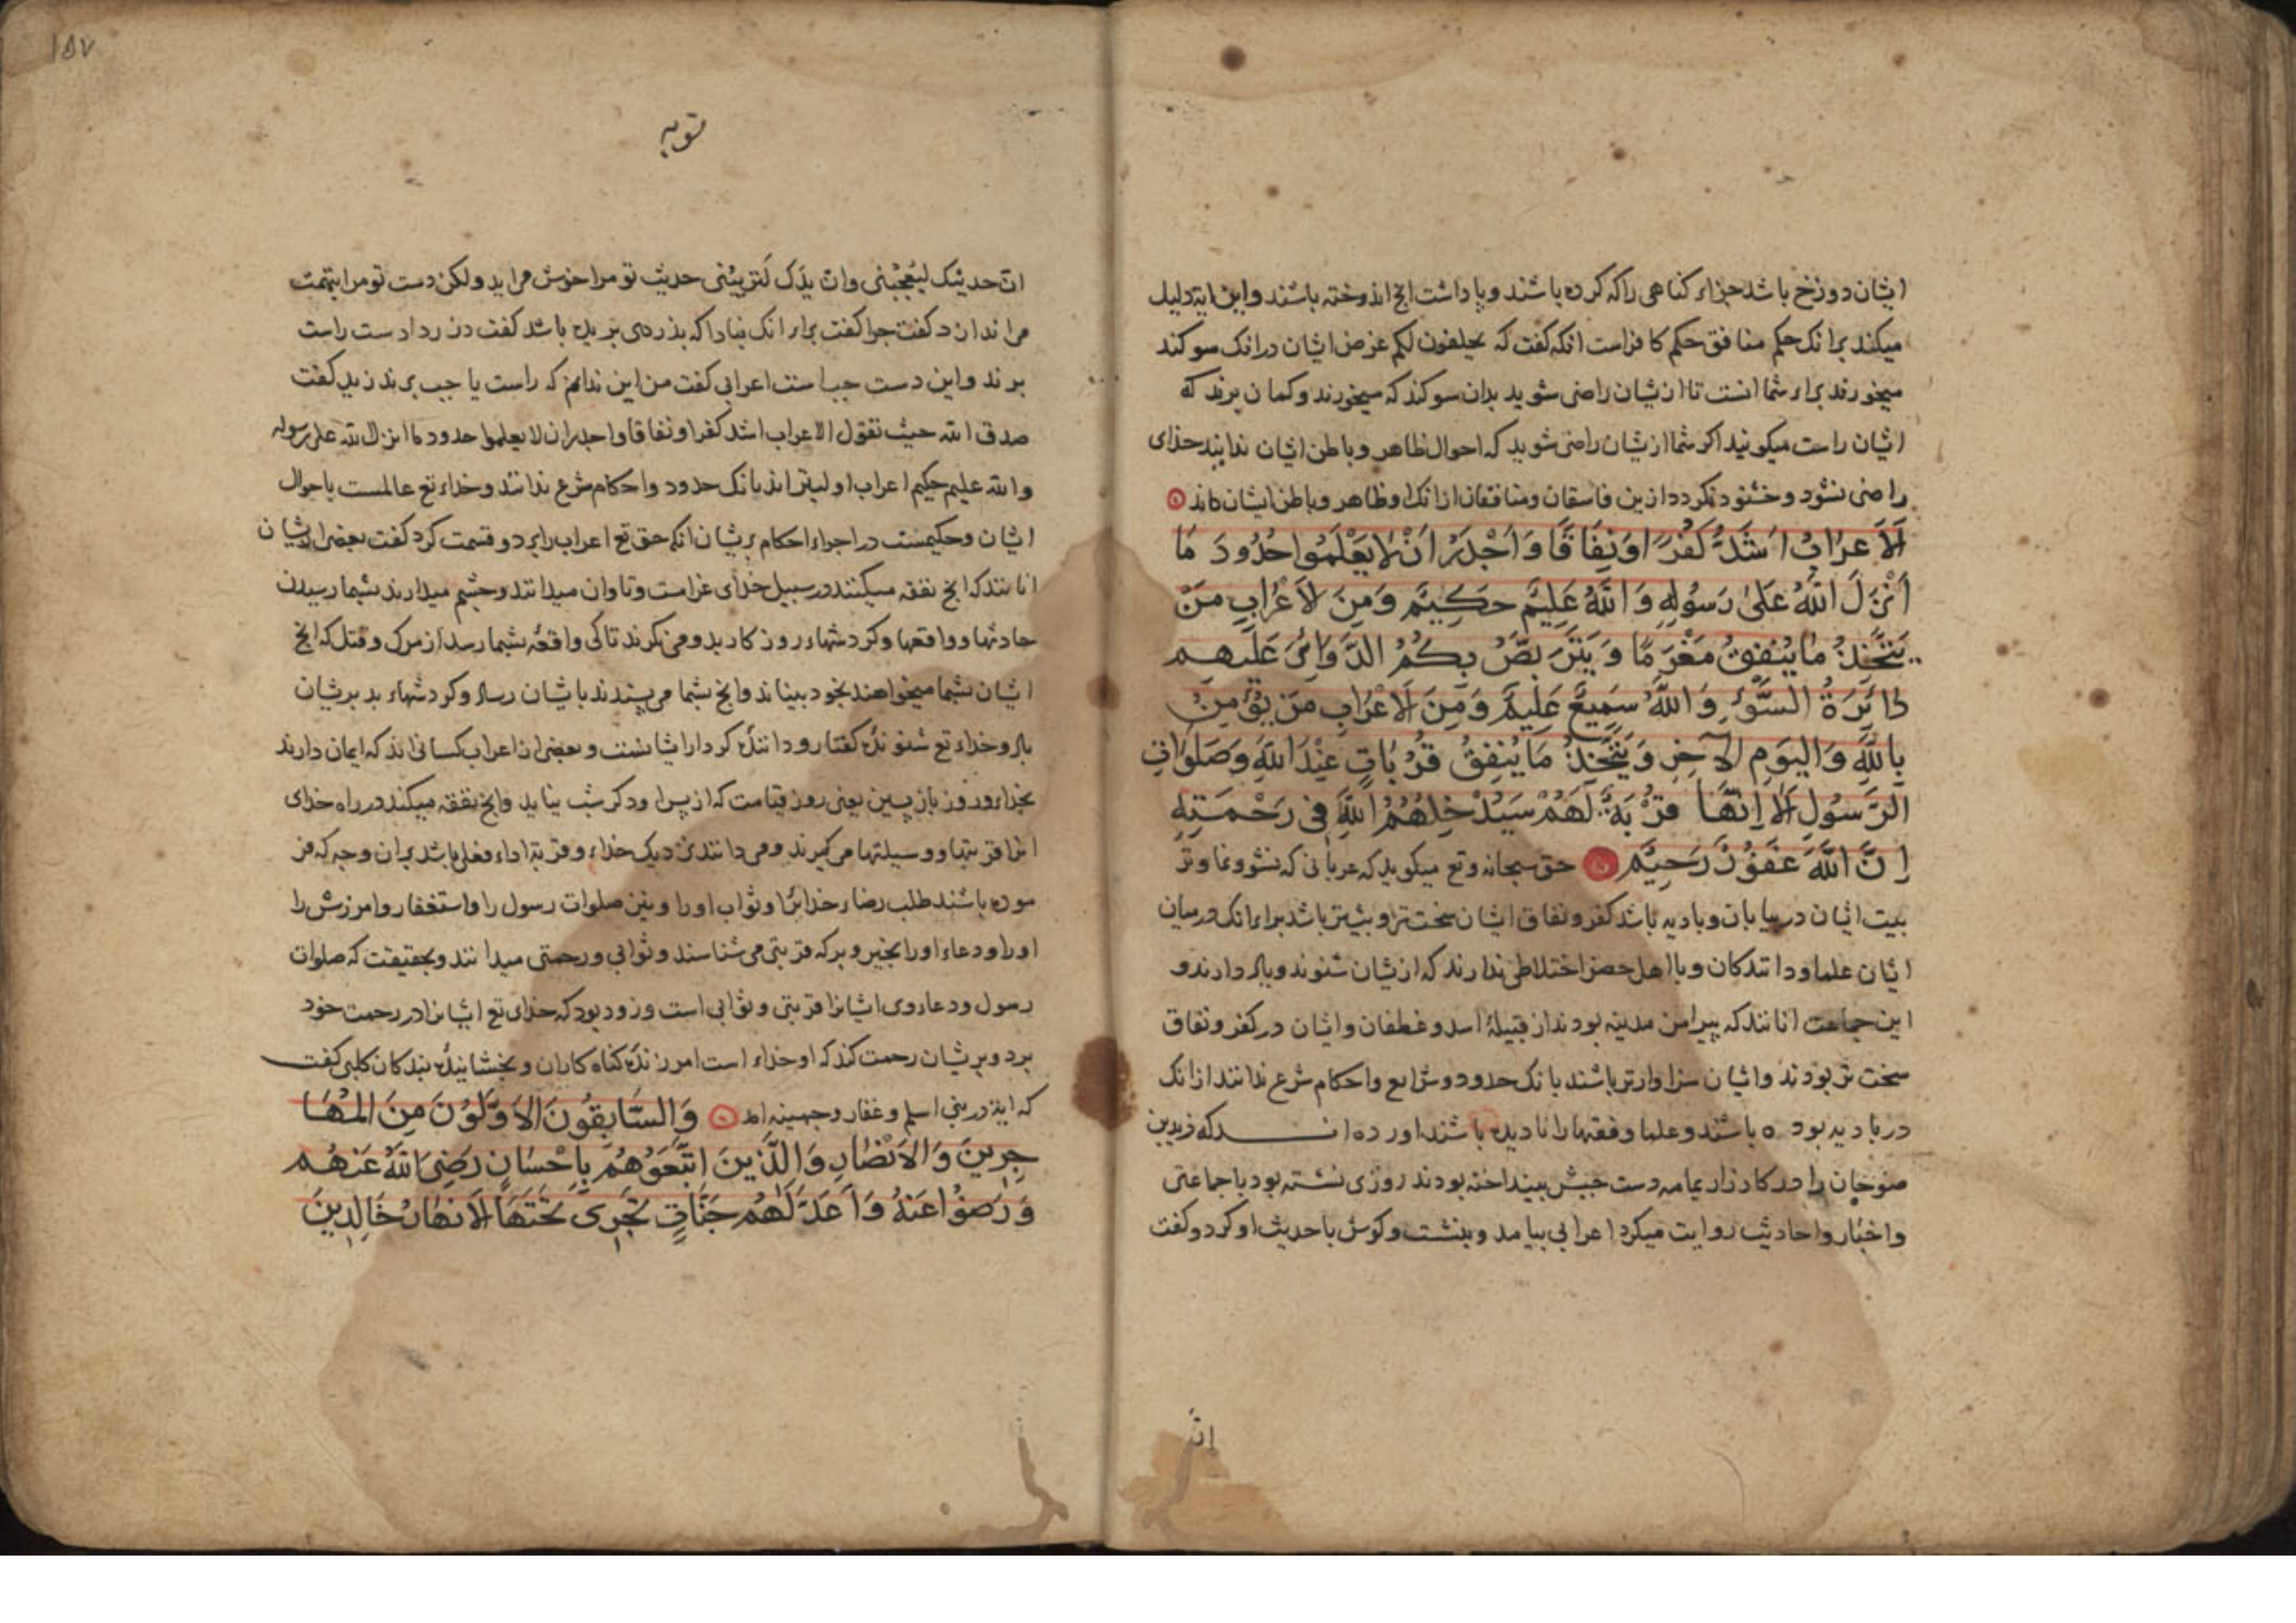 ایشان دوزخ باشد جزاء کناهی را که کرده باشند و پاداشت انج اندوخته باشند و این ایة دلیل
میکند برانک حکم منافق حکم کافر است انکه کفت که یحلفون لکم غرض ایشان درانک سوکند
میخورند براء شما انست تا ازیشان راضی شوید بدان سوکند که میخورند و کمان برند که
ایشان راست میکویند اکر شما ازیشان راضی شوید که احوال ظاهر و باطن ایشان ندانید خدای
راضی نشود و خشنود نکردد ازین فاسقان و منافقان ازانک او ظاهر و باطن ایشان داند
اَلاَعرَابُ اَشَدُّ کُفرًا وَنِفَاقًا وَاَجْدَرُ اَنْ لاَیَعْلَمُوا حُدُودَ مَا
اَنْزَلَ اللّٰهُ عَلیٰ رَسُولِهِ وَاللّٰهُ عَلِیمٌ حَکِیمٌ وَمِنَ لاَعْرَابِ مَنْ
یَتَّخِذُ مَا یُنْفِقُ مَغْرَمًا وَیَتَرَبَّصُ بِکُمُ الدَّوَائرَ عَلَیهِم
دَائِرَةُ السَّوْءِ وَاللّٰهُ سَمِیعٌ عَلِیمٌ وَمِنَ لاَعْرَابِ مَنْ یُؤْمِنُ
بِاللّٰهِ وَالیَومِ الآخِرِ وَیَتَّخِذُ مَا یُنْفِقُ قُرُبَاتٍ عِنْدَ اللّٰهِ وَصَلَوَاتِ
الرَّسُولِ اَلاَ اِنَّهَا قُرْبَةٌ لَهُمْ سَیُدْخِلُهُمُ اللّٰهُ فِی رَحْمَتِهِ
اِنَّ اللّٰهَ غَفُورٌ رَحِیمٌ حق سبحانه و تع میکوید که عربانی که نشو و نما و تر
بیت ایشان در بیابان و بادیه باشد کفر و نفاق ایشان سخت تر و بیشتر باشد براء انک در میان
ایشان علما و دانندکان و با اهل حضر اختلاطی ندارند که ازیشان شنوند و یاد دارند و
این جماعت انانند که پیرامن مدینه بودند از قبیلهٔ اسد و غطفان و ایشان در کفر و نفاق
سخت تر بودند و ایشان سزاوارتر باشند بانک حدود و شرایع و احکام شرع ندانند ازانک
در بادیه بوده باشند و علما و فقها را نادیده باشند اورده اند که زیدبن
صوخان را در کارزار یمامه دست چپش بینداخته بودند روزی نشسته بود با جماعتی
و اخبار و احادیث روایت میکرد اعرابی بیامد و بنشست و کوش با حدیث او کرد و کفت
اِنّ
۱۵۷
توبه
انّ حدیثک لیُعْجِبُنی و انّ یدَک لَتُرِیبُنی حدیث تو مرا خوش می اید ولکن دست تو مرا بتهمت
می اندازد کفت چرا کفت براء انک مبادا که بدزدی بریده باشد کفت دزد را دست راست
برند و این دست چپ است اعرابی کفت من این ندانم که راست یا چپ برند زید کفت
صدق الله حیث نقول الاعراب اشد کفرا و نفاقا و اجدر ان لا یعلموا حدود ما انزل الله علی رسوله
والله علیم حکیم اعراب اولیتراند بانک حدود و احکام شرع ندانند و خداء تع عالمست باحوال
ایشان و حکیمست در اجراء احکام بریشان انکه حق تع اعراب را بر دو قسمت کرد کفت بعضی ازیشان
انانند که انج نفقه میکنند در سبیل خدای غرامت و تاوان میدانند و چشم میدارند بشما رسیدن
حادثها و واقعها و کردشهاء روزکار بد و می نکرند تا کی واقعهٔ بشما رسد از مرک و قتل که انج
ایشان بشما میخواهند بخود بینند و انج بشما می پسندند بایشان رساد و کردشهاء بد بریشان
باد و خداء تع شنونده کفتار و دانندهٔ کردار ایشانست و بعضی از اعراب کسانی اند که ایمان دارند
بخداء و روز بازپسین یعنی روز قیامت که از پس او دکر شب نیاید و انج نفقه میکنند در راه خدای
انرا قربتها و وسیلتها می کیرند و می دانند نزدیک خداء و قربة اداء فعلی باشد بران وجه که فر
موده باشند طلب رضاء خدایرا و ثواب او را و نیز صلوات رسول را و استغفار و امرزش را
او را و دعاء او را بخیر و برکه قربتی می شناسند و ثوابی و رحمتی میدانند و بحقیقت که صلوات
رسول و دعاء وی ایشانرا قربتی و ثوابی است و زود بود که خدای تع ایشانرا در رحمت خود
برد و بریشان رحمت کند که او خداء است امرزندهٔ کناه کاران و بخشایندهٔ بندکان کلبی کفت
که ایة در بنی اسلم و غفار و جهینه امد وَالسَّابِقُونَ الاَوَّلُونَ مِنَ المُهَا
جِرِینَ وَالاَنْصَارِ وَالَّذِینَ اتَّبَعُوهُمْ بِاِحْسَانٍ رَضِیَ اللّٰهُ عَنْهُم
وَرَضُوْا عَنْهُ وَاَعَدَّ لَهُمْ جَنَّاتٍ تَجْرِی تَحْتَهَا الاَنهَارُ خَالِدِینَ